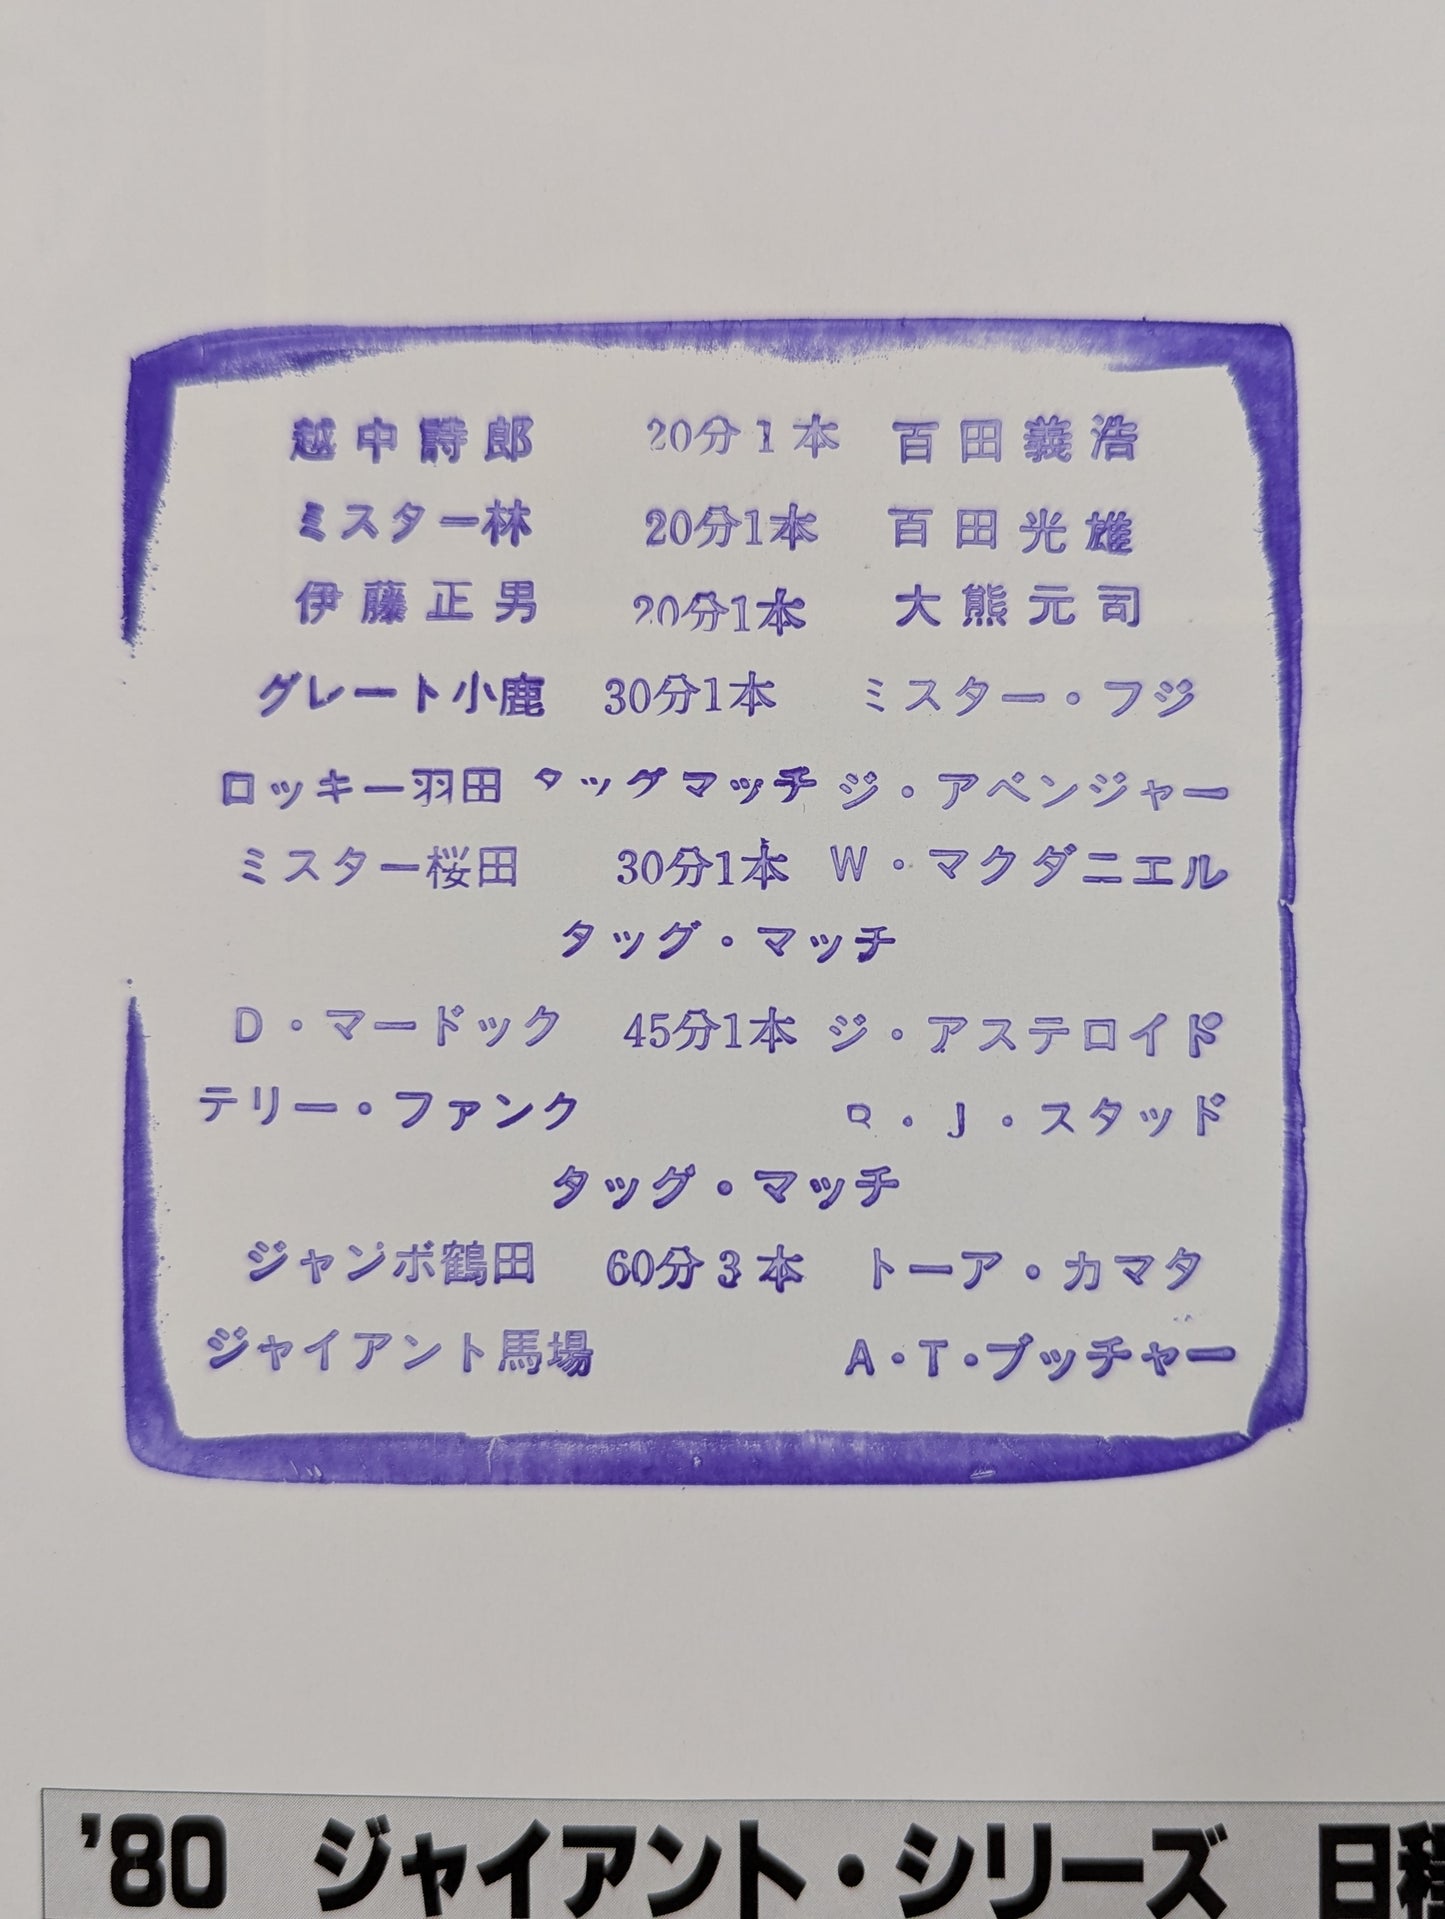 越中詩郎 20分1本 百田義浩
ミスター林 20分1本 百田光雄
伊藤正男 20分1本 大熊元司
グレート小鹿 30分1本 ミスター・フジ
ロッキー羽田 タッグマッチ ジ・アベンジャー
ミスター桜田 30分1本 W・マクダニエル
タッグ・マッチ
D・マードック 45分1本 ジ・アステロイド
テリー・ファンク B・J・スタッド
タッグ・マッチ
ジャンボ鶴田 60分3本 トーア・カマタ
ジャイアント馬場 A・T・ブッチャー
'80 ジャイアント・シリーズ 日